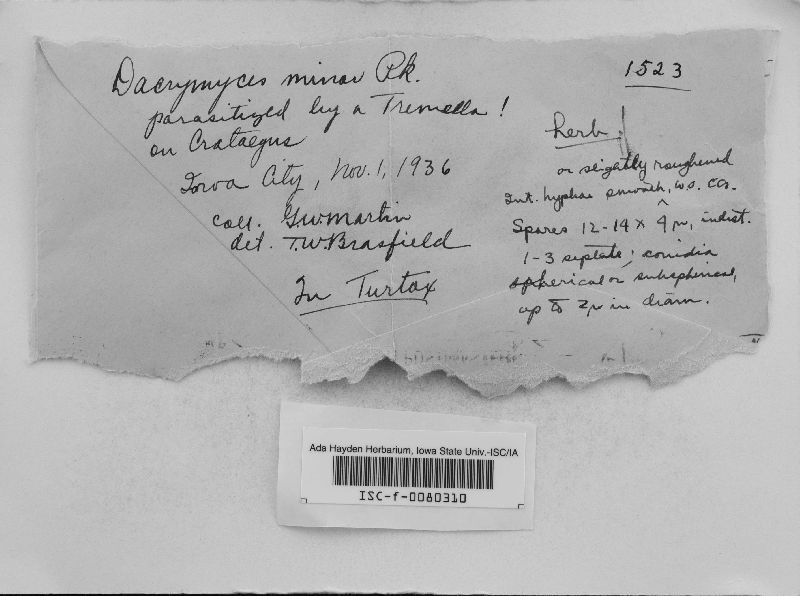 Dacrymyces minor Pk.
parasitized by a Tremella!
on Crataegus
Iowa City, Nov. 1, 1936
coll. G.W. Martin
det. T.W. Brasfield
In Turtox
1523
herb.
or slightly roughened
Int. hyphae smooth, w.o. cos.
Spores 12-14 x 4 μ, indist.
1-3 septate; conidia
spherical or subspherical,
up to 2μ in diam.
Ada Hayden Herbarium, Iowa State Univ.-ISC/IA
ISC-f-0080310